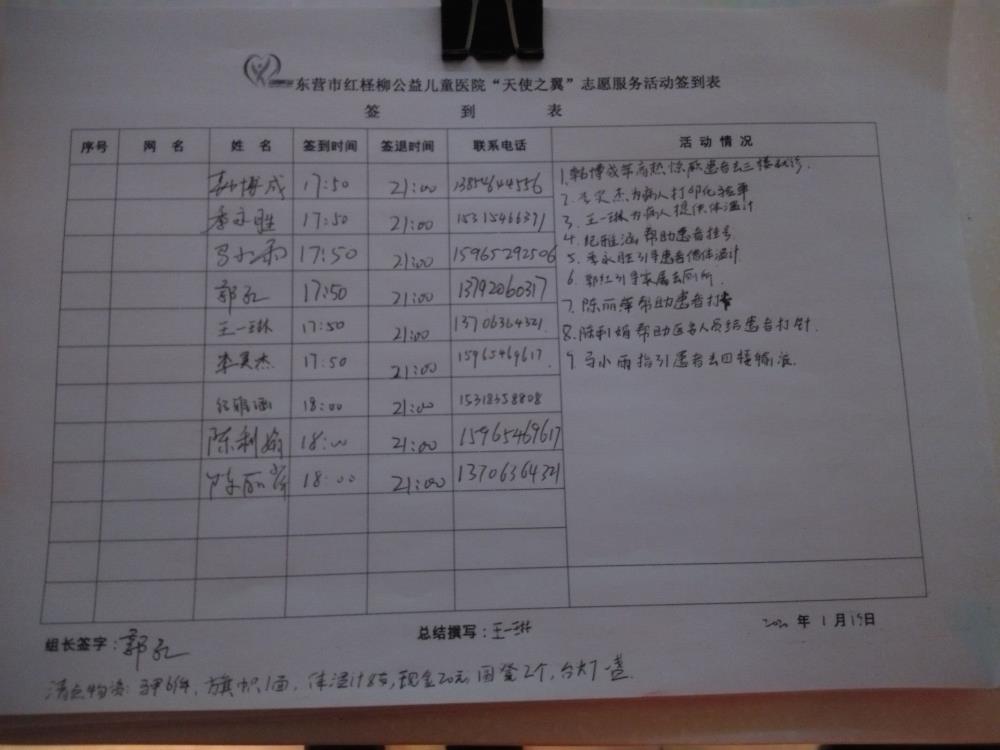 东营市红柽柳公益儿童医院“天使之翼”志愿服务活动签到表
签 到 表
序号 网 名 姓 名 签到时间 签退时间 联系电话 活 动 情 况
韩博成 17:50 21:00 13854644556
李永胜 17:50 21:00 15315466371
马小雨 17:50 21:00 15965292506
郭红 17:50 21:00 13792060317
王一琳 17:50 21:00 13706364321
李昊杰 17:50 21:00 15965469617
纪雅涵 18:00 21:00 15318358808
陈利娟 18:00 21:00 15965469617
陈丽萍 18:00 21:00 13706364321
1.韩博成 高热惊厥患者去三楼就诊.
2.李昊杰为病人打印化验单
3.王一琳为病人提供体温计
4.纪雅涵帮助患者挂号
5.李永胜引导患者借体温计
6.郭红引导家属去厕所
7.陈丽萍帮助患者打
8.陈利娟帮助医务人员给患者打针.
9.马小雨指引患者去四楼输液.
组长签字:郭红
总结撰写:王一琳
2020 年 1 月 19 日
清点物资:马甲6件,旗帜1面,体温计8支,现金20元,图鉴2个,台灯一盏